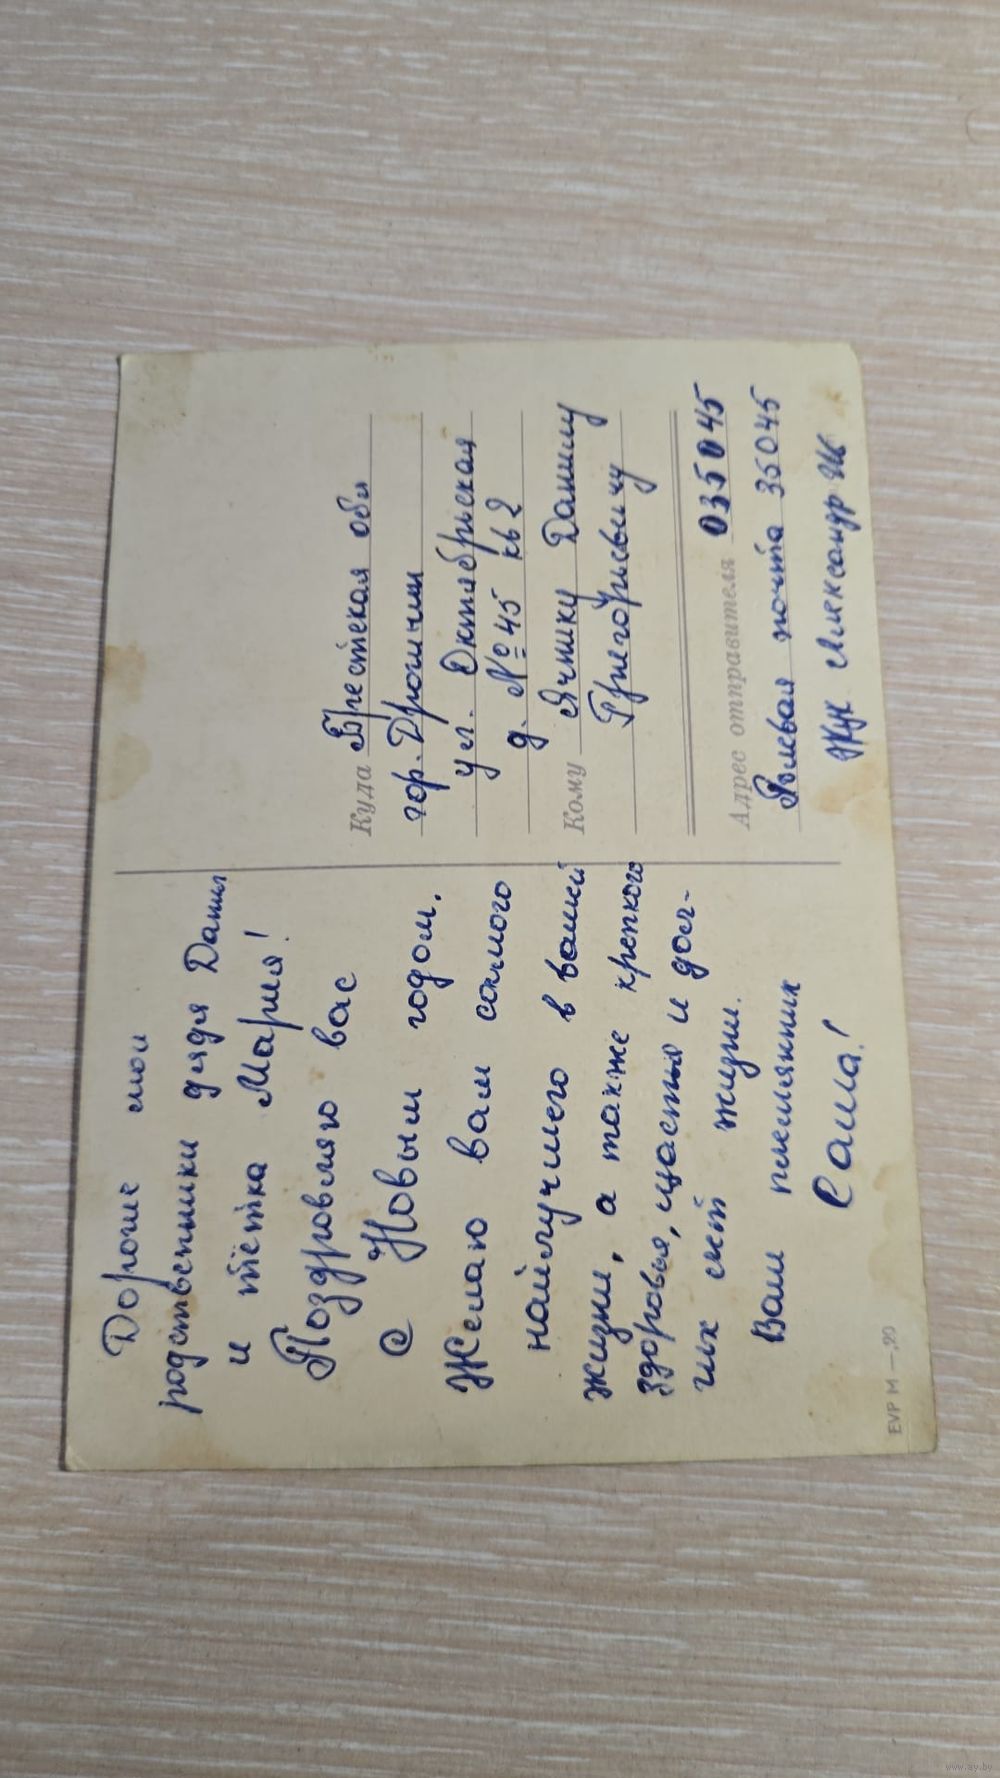 Дорогие мои
родственики дядя Данил
и тётка Мария!
Поздровляю вас
с Новым годом.
Желаю вам самого
найлучшего в вашей
жизни, а также крепкого
здоровья, щастья и долг-
их лет жизни.
Ваш племянник
Саша!
EVP M —,20
Куда Брестская обл
гор. Дрогичин
ул. Октябрьская
д. №45 кв 2
Кому Ячнику Данилу
Григорьевичу
Адрес отправителя 035045
Полевая почта 35045
Жук Александр
www.ay.by